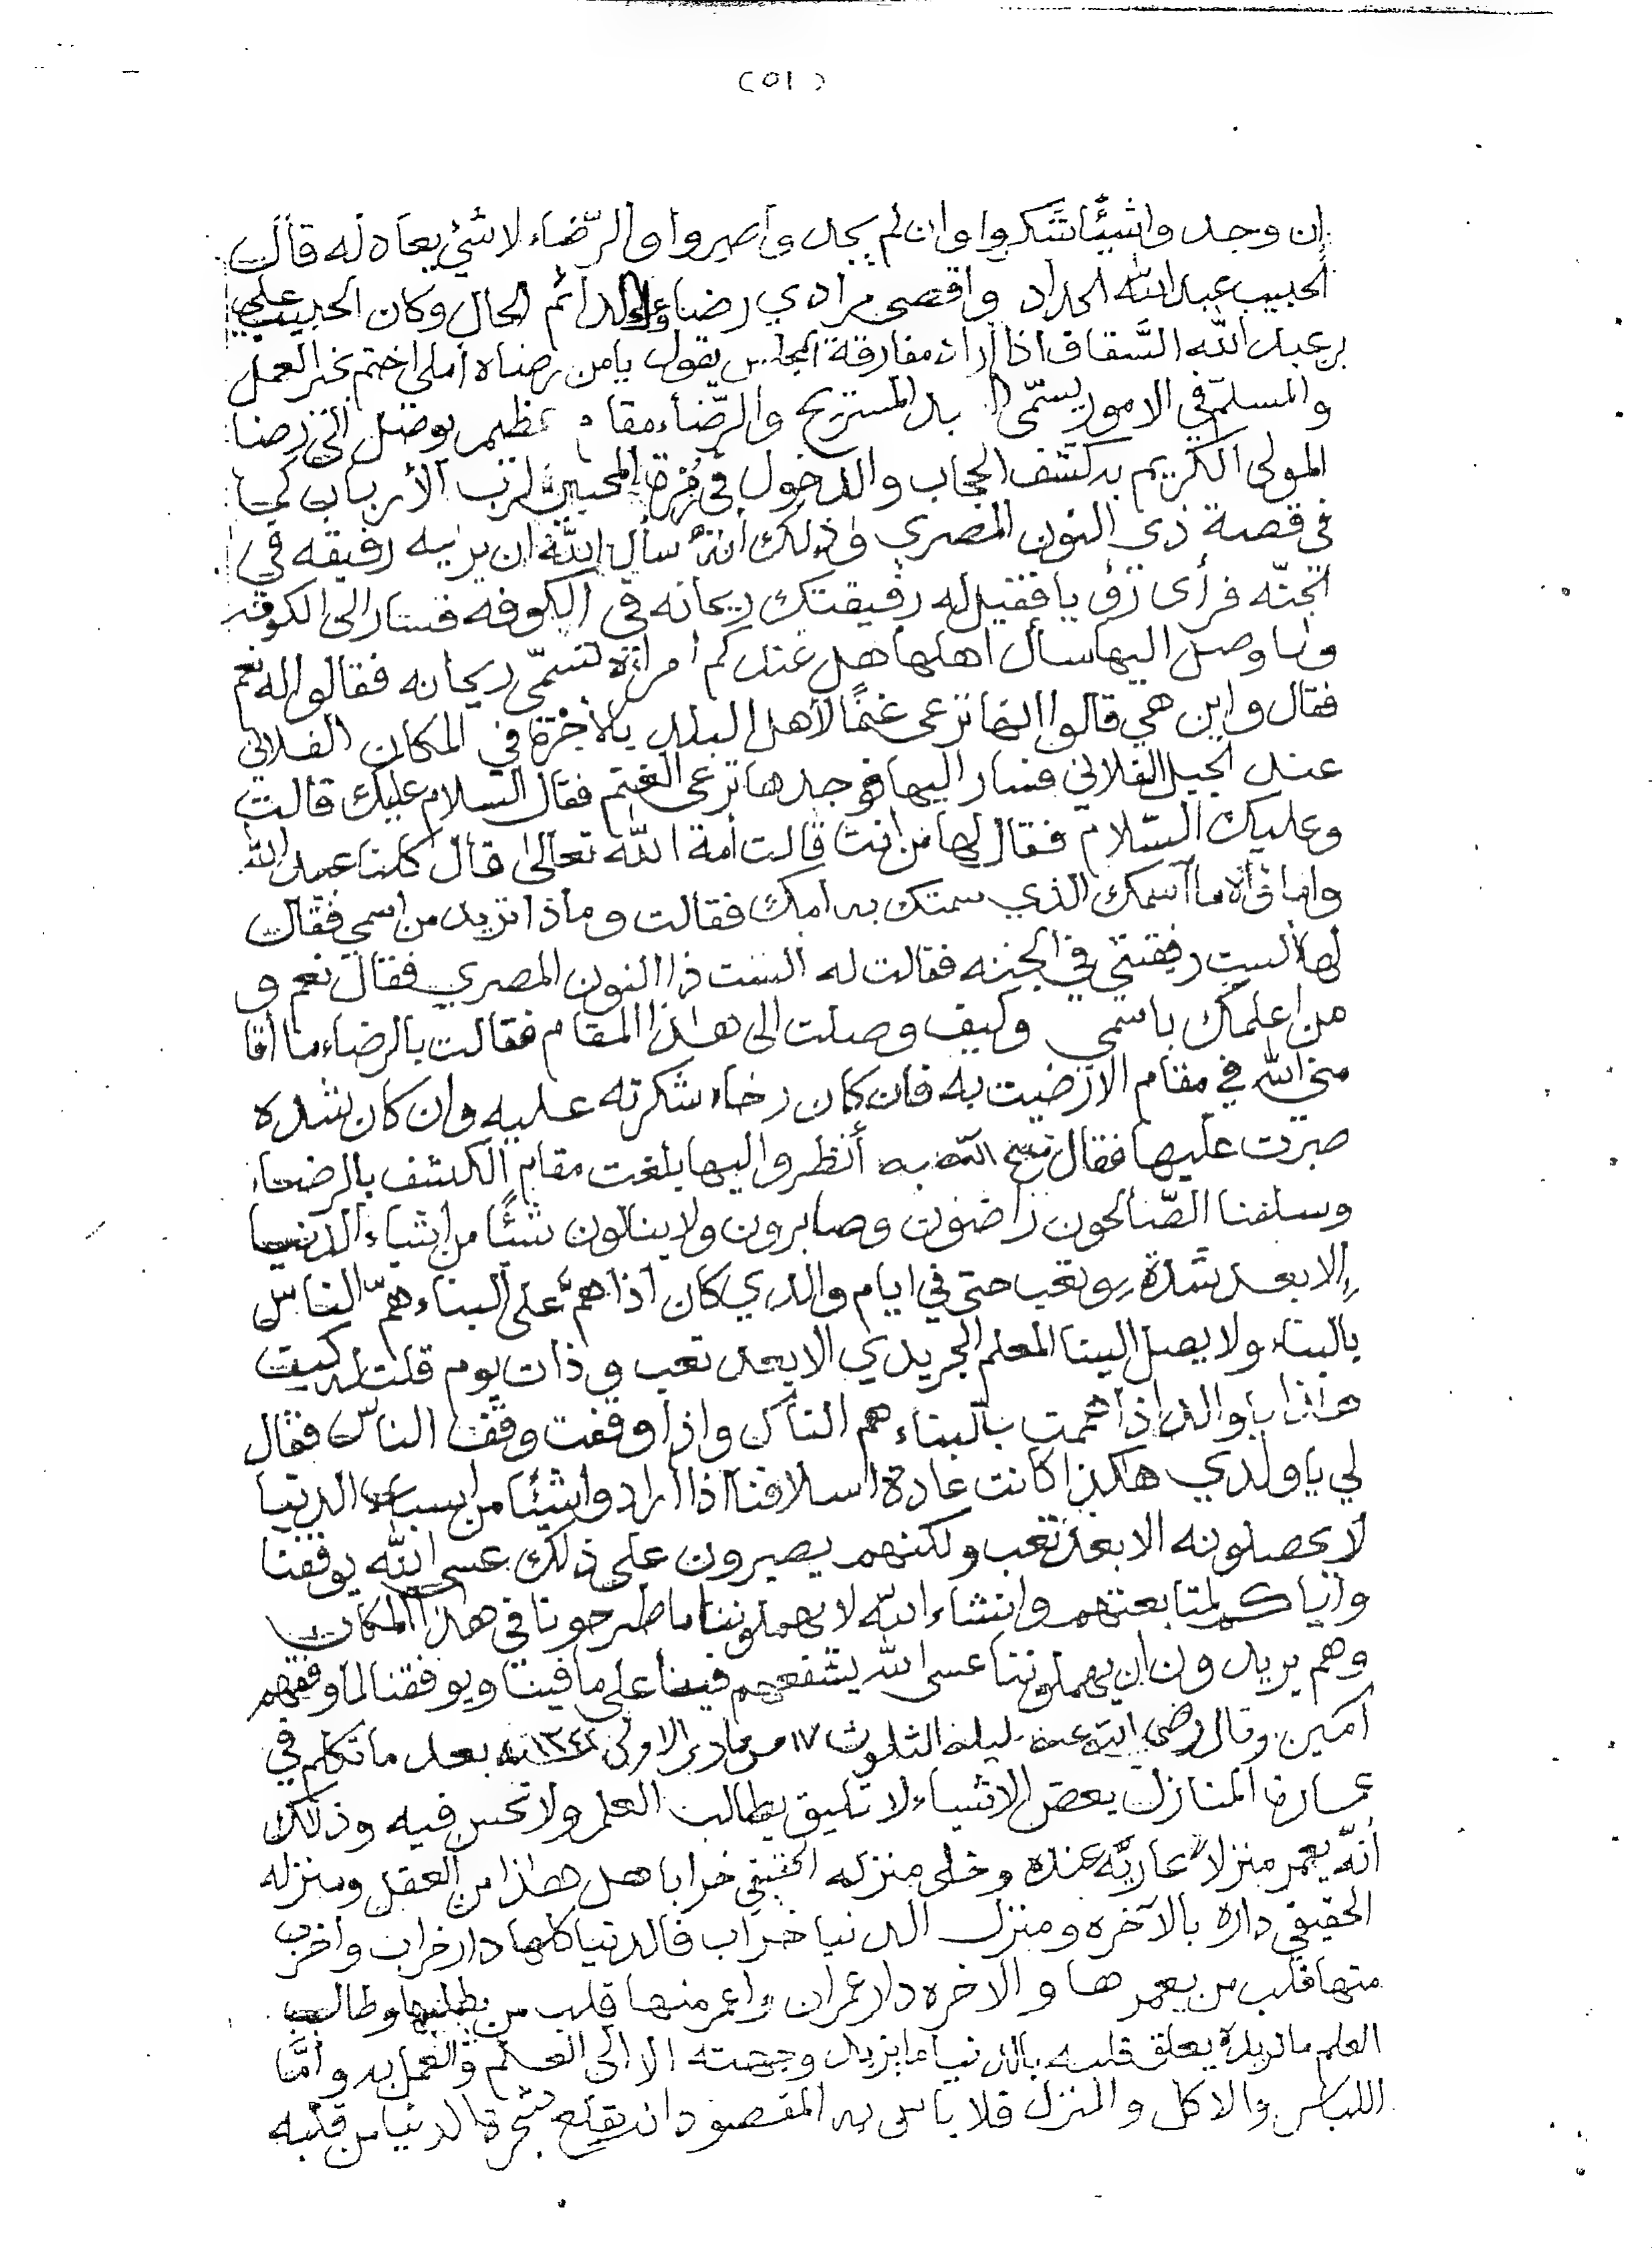 (٥١)
إن وجدوا شيئًا شكروا وان لم يجدوا صبروا والرّضاء لا شيء يعادله قال
الحبيب عبدالله الحداد واقصى مرادي رضاء الدائم الحال وكان الحبيب علي
بن عبدالله السَّقاف اذا اراد مفارقة المجلس يقول يا من رضاه املي اختم بخير العمل
والمسلّم في الامور يسمّى المستريح والرّضاء مقام عظيم يوصل الى رضا
المولى الكريم به كشف الحجاب والدخول في زمرة المحبين لرب الأرباب كما
في قصة ذي النون المصري وذلك أنه سأل الله ان يريه رفيقه في
الجنّه فرأى رؤيا فقيل له رفيقتك ريحانه في الكوفه فسار الى الكوفه
ولما وصل اليها سأل اهلها هل عندكم امرأة تسمّى ريحانه فقالوا له نعم
فقال واين هي قالوا انها ترعى غنمًا لأهل البلد بالأجرة في المكان الفلاني
عند الجبل الفلاني فسار اليها فوجدها ترعى الغنم فقال السلام عليك قالت
وعليك السّلام فقال لها من انت قالت أمة الله تعالى قال كلنا عبيد الله
وامائه ما اسمك الذي سمتك به امك فقالت وماذا تريد من اسمي فقال
لها ألست رفيقتي في الجنه فقالت له الست ذا النون المصري فقال نعم و
من اعلمك باسمي وكيف وصلت الى هذا المقام فقالت بالرضاء ما اقا
مني الله في مقام الا رضيت به فان كان رخاء شكرته عليه وان كان شده
صبرت عليها فقال فسح الله به أنظروا اليها بلغت مقام الكشف بالرضاء
وسلفنا الصّالحون راضون وصابرون ولا ينالون شيئًا من اشياء الدنيا
إلا بعد شدّة وتعب حتى في ايام والدي كان اذا همّ على البناء همّ الناس
بالبناء ولا يصل الينا المعلم الجريدي الا بعد تعب وذات يوم قلت له كيف
هذا يا والد اذا هممت بالبناء هم الناس واذا وقفت وقف الناس فقال
لي يا ولدي هكذا كانت عادة اسلافنا اذا ارادوا شيئًا من اسباب الدنيا
لا يحصلونه الا بعد تعب ولكنهم يصبرون على ذلك عسى الله يوفقنا
واياكم لمتابعتهم وانشاء الله لا يهملوننا ما طرحونا في هذا المكان
وهم يريدون ان يهملوننا عسى الله يشفعهم فينا على ما فينا ويوفقنا لما وفقهم
امين وقال رضي الله عنه ليلة الثلوث ١٧ من جماد الاولى سنه بعد ما تكلم في
عمارة المنازل بعض الاشياء لا تليق بطالب العلم ولا تحسن فيه وذلك
أنّه يعمر منزلًا عاريّه عنده وخلى منزله الحقيقي خرابا هل هذا من العقل ومنزله
الحقيقي داره بالآخره ومنزل الدنيا خراب فالدنيا كلها دار خراب واخرب
منها قلب من يعمرها والاخره دار عمران واعمر منها قلب من يطلبها وطالب
العلم ما نريده يعلق قلبه بالدنيا ما نريد وجهته الا الى العلم والعمل به وأمّا
اللباس والاكل والمنزل فلا باس به المقصود انه يقلع شجرة الدنيا من قلبه